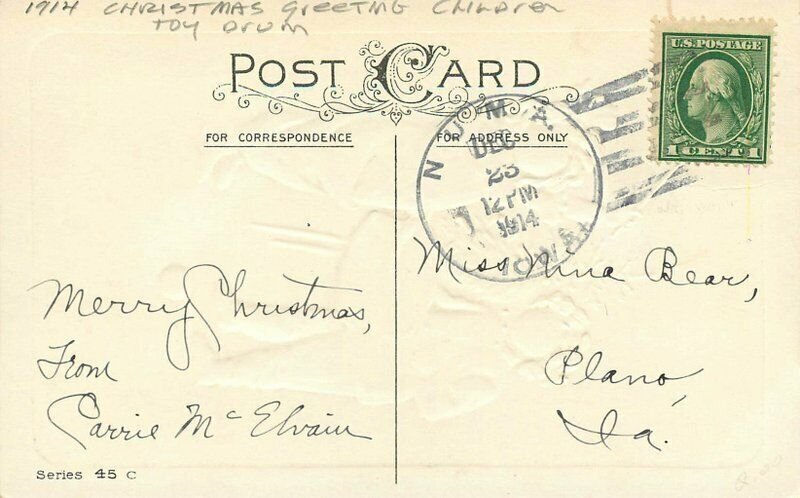 1914 CHRISTMAS GREETING CHILDREN
TOY DRUM
POST CARD
U.S. POSTAGE
1 CENT 1
FOR CORRESPONDENCE
FOR ADDRESS ONLY
NUMA.
DEC
23
12 PM
1914
IOWA
Merry Christmas,
From
Carrie McElvain
Miss Nina Bear,
Plano,
Ia.
Series 45 C